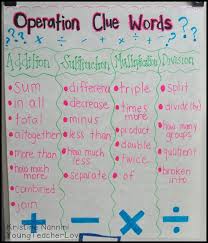 Operation Clue Words
? ? ? + - × ÷ ? ? ?
Addition Subtraction Multiplication Division
sum
in all
total
altogether
more than
how much more
combined
join
difference
decrease
minus
less than
how much less
separate
triple
times more
product
double
twice
of
split
divide (by)
how many groups
quotient
broken into
+ - × ÷
Kristine Nannini
YoungTeacherLove